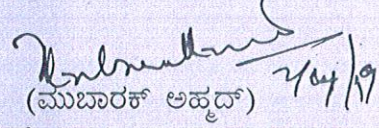 2/04/19
(ಮುಬಾರಕ್ ಅಹ್ಮದ್)